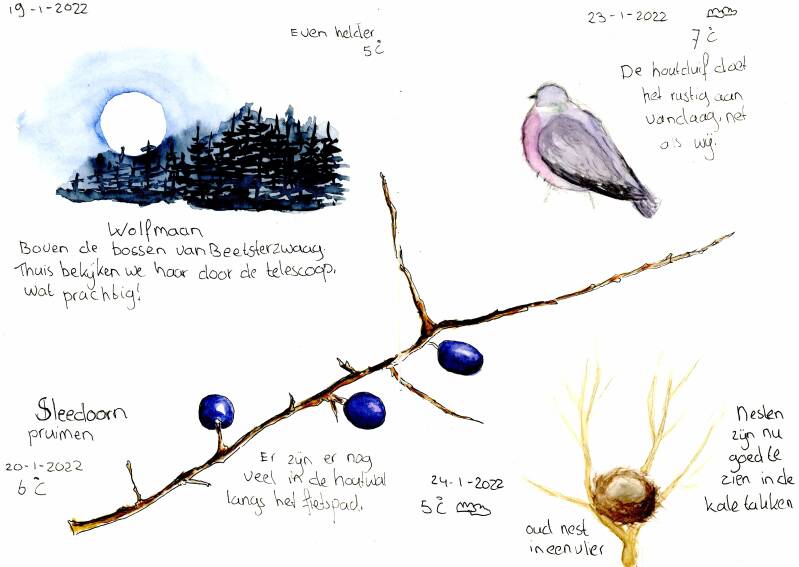 19-1-2022
Even helder
5°C
Wolfmaan
Boven de bossen van Beetsterzwaag.
Thuis bekijken we haar door de telescoop,
wat prachtig!
23-1-2022
7°C
De houtduif doet
het rustig aan
vandaag, net
als wij.
Sleedoorn
pruimen
20-1-2022
6°C
Er zijn er nog
veel in de houtwal
langs het fietspad.
24-1-2022
5°C
oud nest
in een vlier
Nesten
zijn nu
goed te
zien in de
kale takken